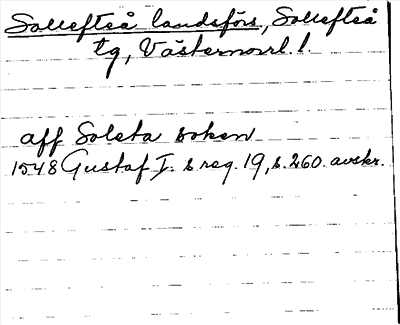 Sollefteå landsförs, Sollefteå
tg, Västernorrl. l.
aff Soleta soken
1548 Gustaf I. s reg. 19, s. 260. avskr.